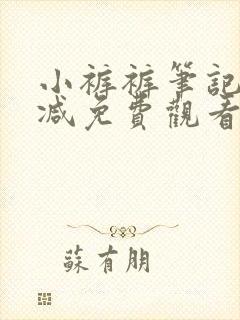 小裤裤筆記
减免費觀看
蘇有朋